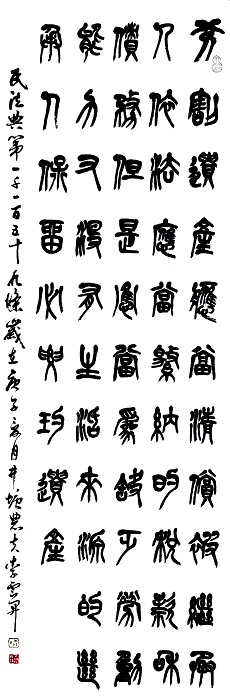 分割遺產應當清償被繼承
人依法應當繳納的稅款和
債務但是應當爲缺乏勞動
能力又沒有生活來源的繼
承人保留必要的遺產
民法典第一千一百五十九條歲在庚子月井李雲